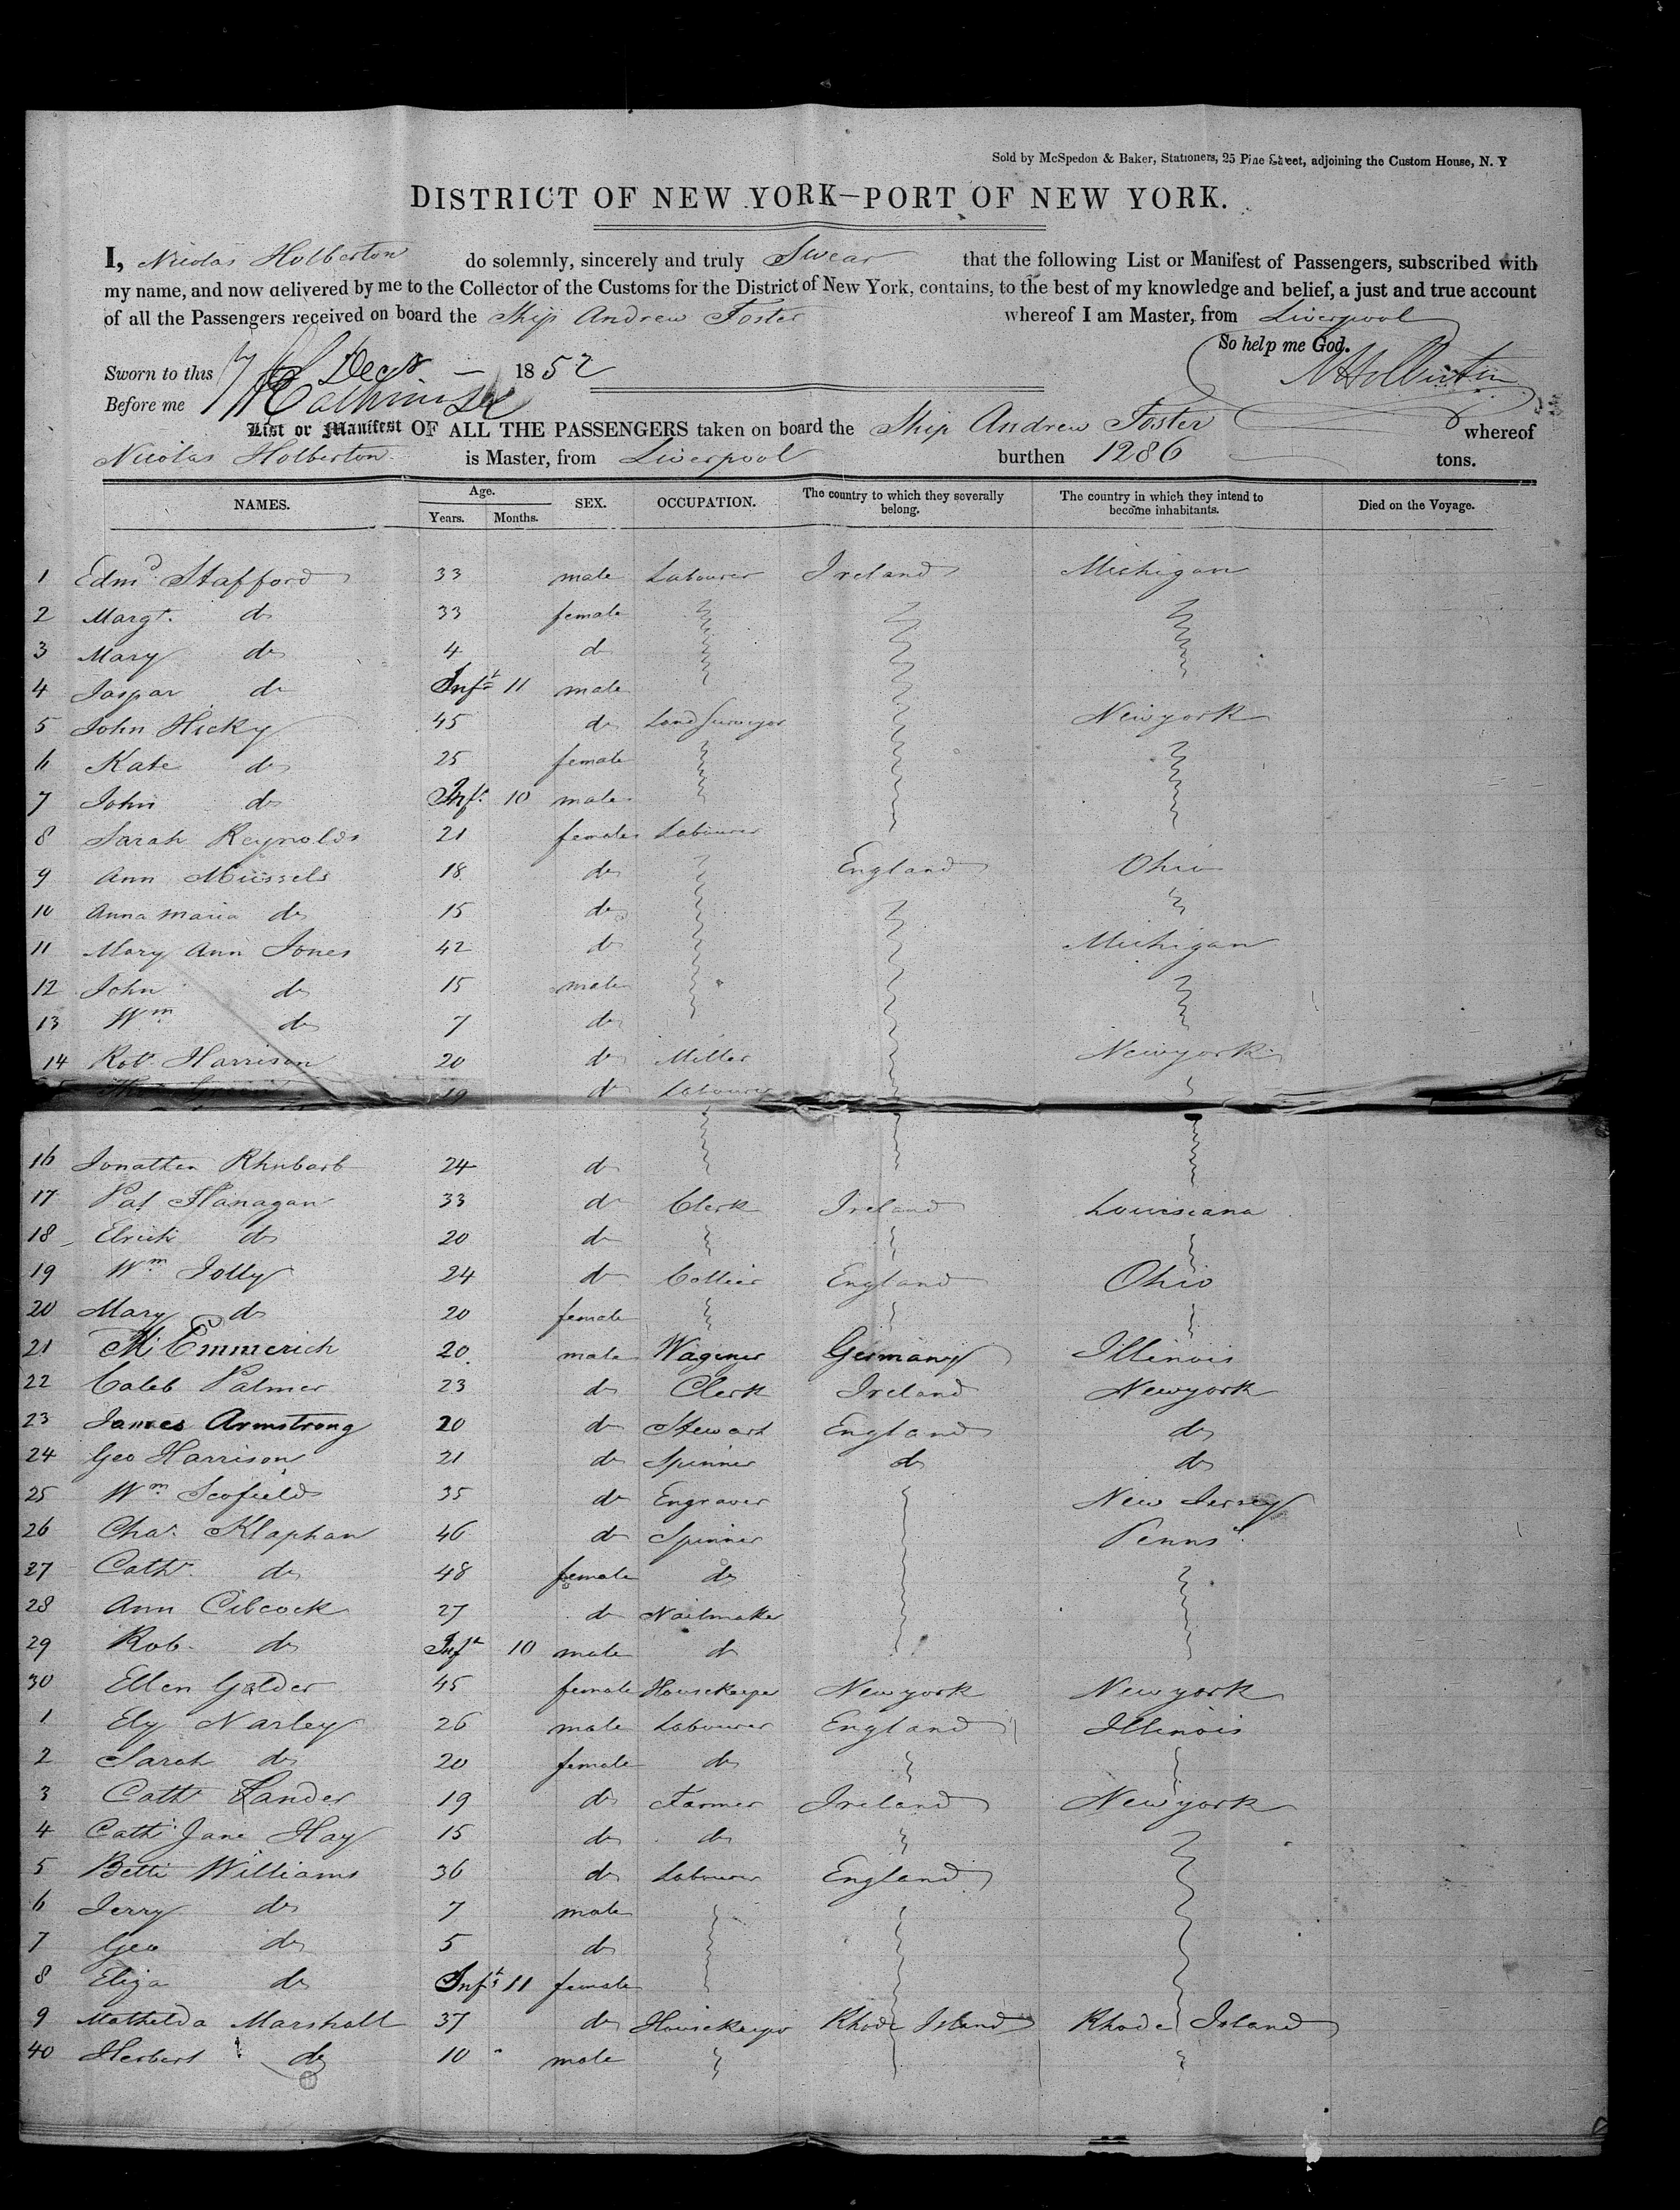 Sold by McSpedon & Baker, Stationers, 25 Pine Street, adjoining the Custom House, N. Y
DISTRICT OF NEW YORK—PORT OF NEW YORK.
I, Nicolas Holberton do solemnly, sincerely and truly Swear that the following List or Manifest of Passengers, subscribed with
my name, and now delivered by me to the Collector of the Customs for the District of New York, contains, to the best of my knowledge and belief, a just and true account
of all the Passengers received on board the Ship Andrew Foster whereof I am Master, from Liverpool
So help me God.
Sworn to this 7 Decr 1852
NHolberton
Before me
List or Manifest OF ALL THE PASSENGERS taken on board the Ship Andrew Foster whereof
Nicolas Holberton is Master, from Liverpool burthen 1286 tons.
NAMES. Age. Years. Months. SEX. OCCUPATION. The country to which they severally belong. The country in which they intend to become inhabitants. Died on the Voyage.
1 Edmd Stafford 33 male Labourer Ireland Michigan
2 Margt. do 33 female
3 Mary do 4 do
4 Jaspar do Inft 11 male
5 John Hicky 45 do Land Surveyor Newyork
6 Kate do 25 female
7 John do Inft. 10 male
8 Sarah Reynolds 21 female Labourer
9 Ann Mussels 18 do England Ohio
10 Anna maria do 15 do
11 Mary Ann Jones 42 do Michigan
12 John do 15 male
13 Wm do 7 do
14 Robt. Harrison 20 do Miller Newyork
19 do Labourer
16 Jonathan Rhubarb 24 do
17 Pat Flanagan 33 do Clerk Ireland Louisiana
18 do 20 do
19 Wm Jolly 24 do Collier England Ohio
20 Mary do 20 female
21 M. Emmerich 20 male Wagener Germany Illinois
22 Caleb Palmer 23 do Clerk Ireland Newyork
23 James Armstrong 20 do Stewart England do
24 Geo Harrison 21 do Spinner do do
25 Wm Scofield 35 do Engraver New Jersey
26 Chas. Klaphan 46 do Spinner Penns.
27 Cathr. do 48 female do
28 Ann Cilcock 27 do Nailmaker
29 Rob. do Inft 10 male do
30 Ellen Golder 45 female Housekeeper Newyork Newyork
1 Ely Narley 26 male Labourer England Illinois
2 Sarah do 20 female do
3 Cathr 19 do Farmer Ireland Newyork
4 Cathr Jane Hay 15 do do
5 Betti Williams 36 do Labourer England
6 Jerry do 7 male
7 Geo do 5 do
8 Eliza do Inft 11 female
9 Mathelda Marshall 37 do Housekeeper Rhode Island Rhode Island
40 Herbert do 10 male